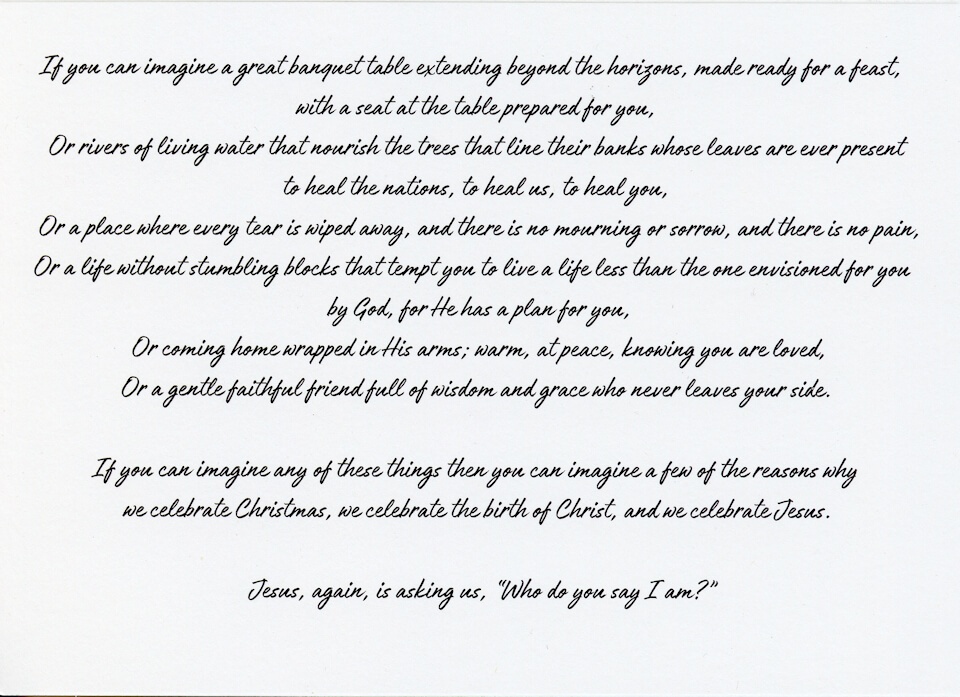 If you can imagine a great banquet table extending beyond the horizons, made ready for a feast,
with a seat at the table prepared for you,
Or rivers of living water that nourish the trees that line their banks whose leaves are ever present
to heal the nations, to heal us, to heal you,
Or a place where every tear is wiped away, and there is no mourning or sorrow, and there is no pain,
Or a life without stumbling blocks that tempt you to live a life less than the one envisioned for you
by God, for He has a plan for you,
Or coming home wrapped in His arms; warm, at peace, knowing you are loved,
Or a gentle faithful friend full of wisdom and grace who never leaves your side.
If you can imagine any of these things then you can imagine a few of the reasons why
we celebrate Christmas, we celebrate the birth of Christ, and we celebrate Jesus.
Jesus, again, is asking us, "Who do you say I am?"